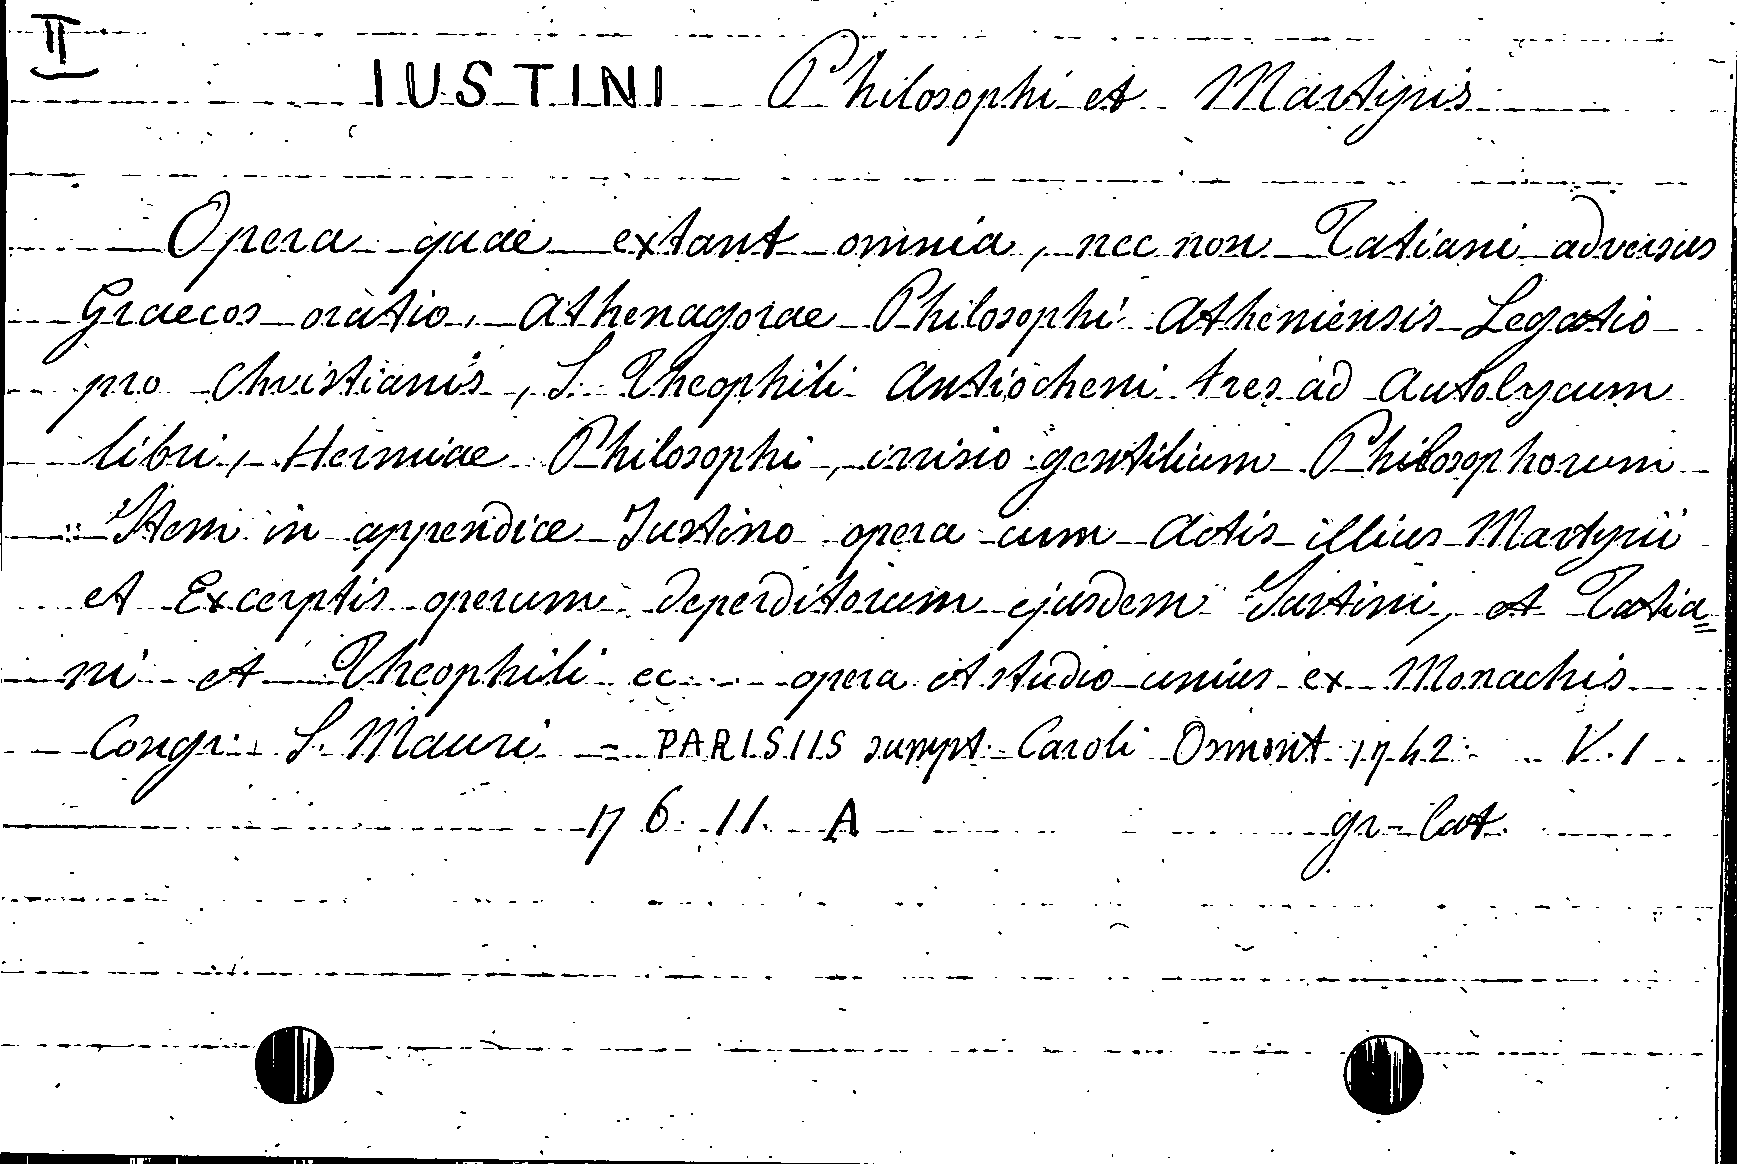 II
IUSTINI Philosophi et Martyris
Opera quae extant omnia, nec non Tatiani adversus
Graecos oratio, Athenagorae Philosophi Atheniensis Legatio
pro Christianis, S. Theophili Antiocheni tres ad Autolycum
libri, Hermiae Philosophi, irrisio gentilium Philosophorum
Item in appendice Iustino opera cum Actis illius Martyrii
et Excerptis operum deperditorum ejusdem Iustini, et Tatia=
ni et Theophili ec opera et studio unius ex Monachis
Congr. S. Mauri = PARISIIS sumpt. Caroli Osmont 1742. V. 1
17 6. 11. A gr-lat.